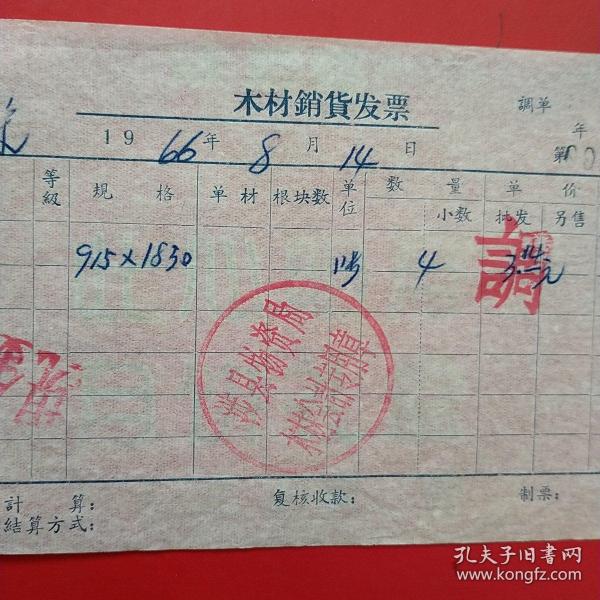 木材銷貨发票
調单
1966年8月14日
年
第
等級 規格 单材 根块数 单位 数量 单价
小数 批发 另售
915×1830 4
調
涉县物资局
計算:
复核收款:
制票:
結算方式:
孔夫子旧书网
www.kongfz.com